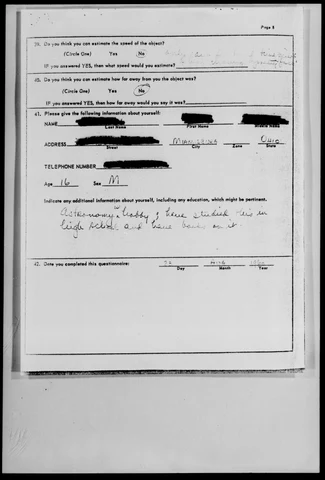 Page 8
39. Do you think you can estimate the speed of the object?
(Circle One) Yes No
IF you answered YES, then what speed would you estimate?
40. Do you think you can estimate how far away from you the object was?
(Circle One) Yes No
IF you answered YES, then how far away would you say it was?
41. Please give the following information about yourself:
NAME
Last Name First Name Middle Name
ADDRESS Miamisburg Ohio
Street City Zone State
TELEPHONE NUMBER
Age 16 Sex M
Indicate any additional information about yourself, including any education, which might be pertinent.
Astronomy hobby I have studied this in
high school and have books on it.
42. Date you completed this questionnaire: Aug
Day Month Year